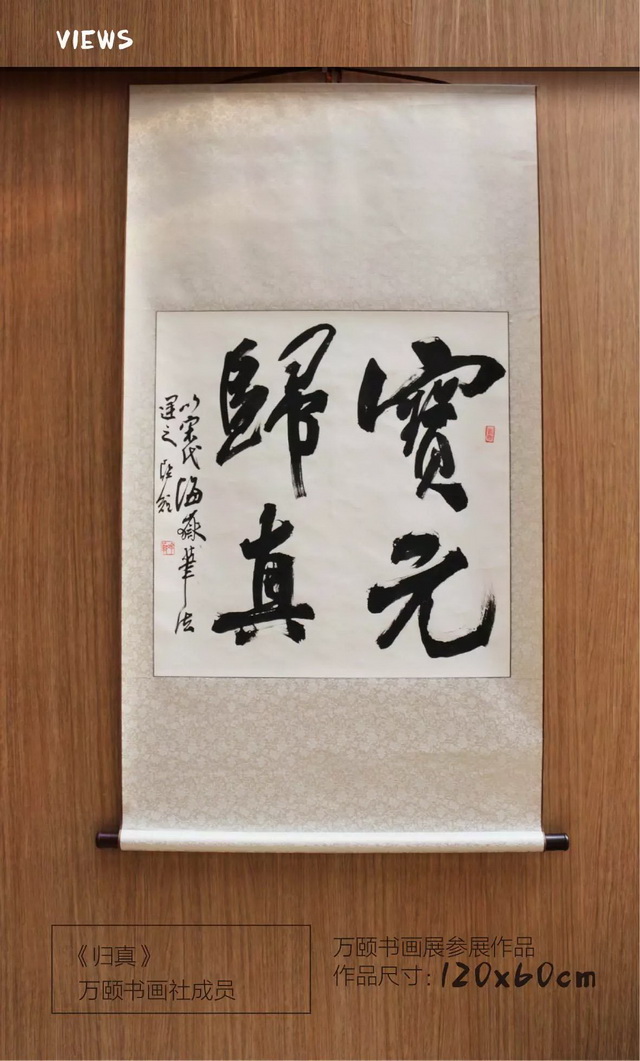 VIEWS
寶元
歸真
以宋代海嶽筆法
《归真》
万颐书画社成员
万颐书画展参展作品
作品尺寸:120x60cm